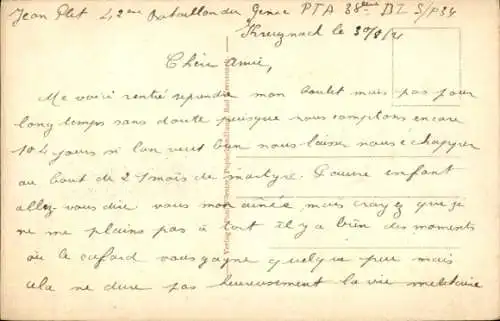 Jean Plet 42ème Bataillon du Génie PTA 38ème DI S/P 34
Kreuznach le 30/8/21
Chère Amie,
Me voici rentré reprendre mon boulet mais pas pour
longtemps sans doute puisque nous comptons encore
104 jours si l'on veut bien nous laisser nous échapper
au bout de 21 mois de martyre. Pauvre enfant
allez-vous dire vous mon aînée mais croyez que je
ne me plains pas à tort il y a bien des moments
où le cafard vous gagne quelque peu mais
cela ne dure pas heureusement la vie militaire